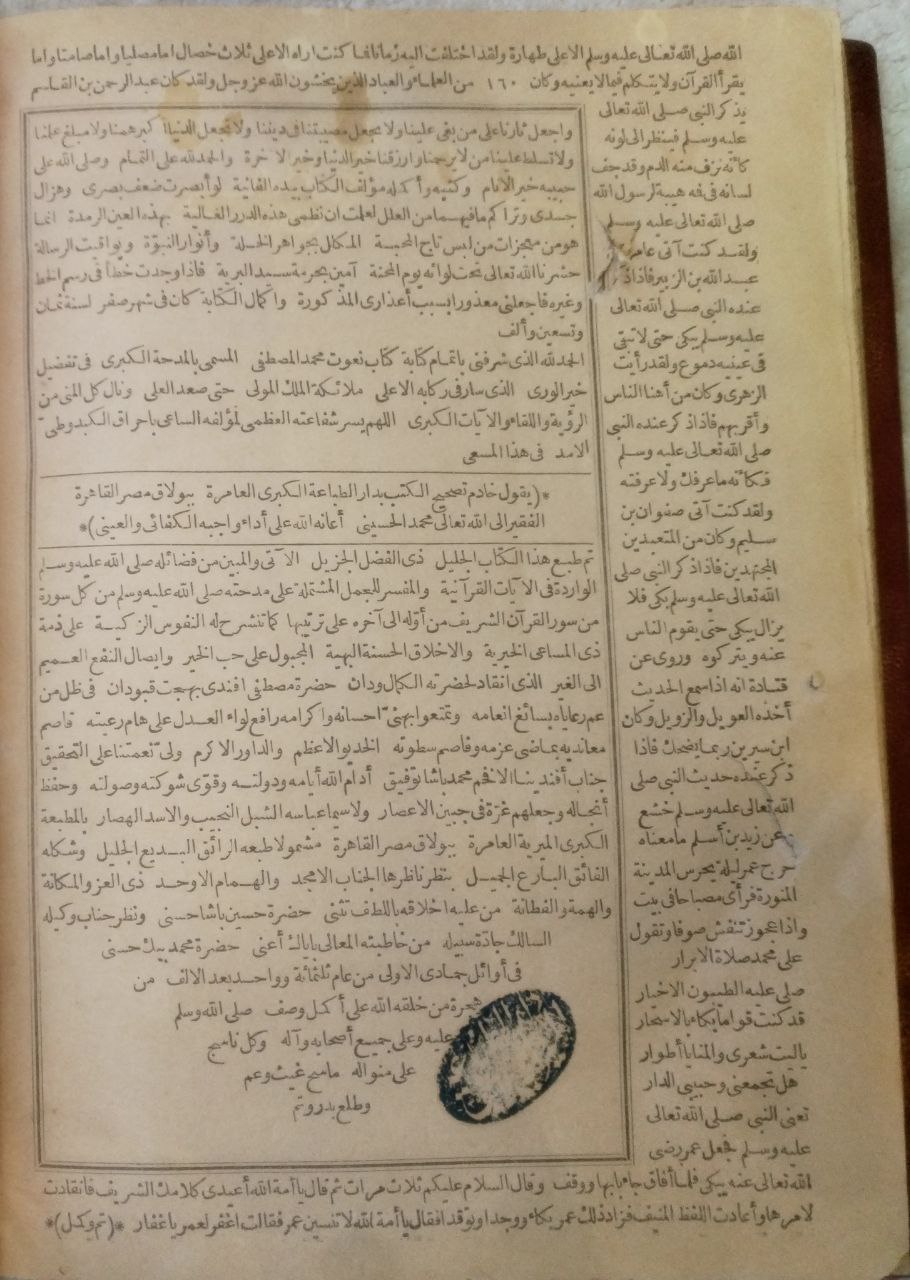 الله صلى الله تعالى عليه وسلم الا على طهارة ولقد اختلفت اليه زمانا فما كنت اراه الا على ثلاث خصال اما مصليا واما صامتا واما
يقرأ القرآن ولا يتكلم فيما لا يعنيه وكان ١٦٠ من العلماء والعباد الذين يخشون الله عز وجل ولقد كان عبد الرحمن بن القاسم
يذكر النبي صلى الله تعالى
عليه وسلم فينظر الى لونه
كأنه نزف منه الدم وقد جف
لسانه في فه هيبة لرسول الله
صلى الله تعالى عليه وسلم
ولقد كنت آتى عامر
عبد الله بن الزبير فاذا ذكر
عنده النبي صلى الله تعالى
عليه وسلم يبكى حتى لا تبقى
فى عينيه دموع ولقد رأيت
الزهرى وكان من أهنا الناس
وأقربهم فاذا ذكر عنده النبي
صلى الله تعالى عليه وسلم
فكأنه ما عرفك ولا عرفته
ولقد كنت آتى صفوان بن
سليم وكان من المتعبدين
المجتهدين فاذا ذكر النبي صلى
الله تعالى عليه وسلم بكى فلا
يزال يبكى حتى يقوم الناس
عنه ويتركوه وروى عن
قتادة انه اذا سمع الحديث
أخذه العويل والزويل وكان
ابن سيرين ربما يضحك فاذا
ذكر عنده حديث النبي صلى
الله تعالى عليه وسلم خشع
عن زيد بن أسلم ما معناه
خرج عمر ليلة يحرس المدينة
المنورة فرأى مصباحا فى بيت
واذا عجوز تنفش صوفا وتقول
على محمد صلاة الابرار
صلى عليه الطيبون الاخيار
قد كنت قواما بكاء بالاسحار
ياليت شعرى والمنايا أطوار
هل تجمعنى وحبيبى الدار
تعنى النبي صلى الله تعالى
عليه وسلم فجعل عمر رضى
الله تعالى عنه يبكى فلما أفاق جاء بابها ووقف وقال السلام عليكم ثلاث مرات ثم قال يا أمة الله أعيدى كلامك الشريف فانقادت
لامرها وأعادت اللفظ المنيف فزاد ذلك عمر بكاء ووجدا وتوقدا فقال يا أمة الله لا تنسين عمر فقالت اغفر لعمر يا غفار *(تم وكمل)*
واجعل ثأرنا على من بقى علينا ولا تجعل مصيبتنا فى ديننا ولا تجعل الدنيا أكبر همنا ولا مبلغ علمنا
ولا تسلط علينا من لا يرحمنا وارزقنا خير الدنيا وخير الآخرة والحمد لله على التمام وصلى الله على
حبيبه خير الانام وكتبه وأكمله مؤلف الكتاب بيده الفانية لو أبصرت ضعف بصرى وهزال
جسدى وتراكم ما فيهما من العلل لعلمت ان نظمى هذه الدرر الغالية بهذه العين الرمدة انما
هو من معجزات من لبس تاج المحبة المكلل بجواهر الخلة وأنوار النبوة ويواقيت الرسالة
حشرنا الله تعالى تحت لوائه يوم المحنة آمين بحرمة سيد البرية فاذا وجدت خطأ فى رسم الخط
وغيره فاجعلنى معذورا بسبب أعذارى المذكورة واكمال الكتابة كان فى شهر صفر لسنة ثمان
وتسعين وألف
الحمد لله الذى شرفنى باتمام كتابة كتاب نعوت محمد المصطفى المسمى بالمدحة الكبرى فى تفضيل
خير الورى الذى سار فى ركابه الاعلى ملائكة الملك المولى حتى صعد العلى ونال كل المنى من
الرؤية واللقاء والآيات الكبرى اللهم يسر شفاعته العظمى لمؤلفه الساعى باحراق الكبد وطى
الامد فى هذا المسعى
*(يقول خادم تصحيح الكتب بدار الطباعة الكبرى العامرة ببولاق مصر القاهرة
الفقير الى الله تعالى محمد الحسينى أعانه الله على أداء واجبه الكفائى والعينى)*
تم طبع هذا الكتاب الجليل ذى الفضل الجزيل الآتى والمبين من فضائله صلى الله عليه وسلم
الواردة فى الآيات القرآنية والمفسر للجمل المشتملة على مدحته صلى الله عليه وسلم من كل سورة
من سور القرآن الشريف من أوله الى آخره على ترتيبها كما تنشرح له النفوس الزكية على ذمة
ذى المساعى الخيرية والاخلاق الحسنة البهية المجبول على حب الخير وايصال النفع العميم
الى الغير الذى انقاد لحضرته الكمال ودان حضرة مصطفى افندى بهجت قبودان فى ظل من
عم رعاياه بسائغ انعامه وتمتعوا بهنىّ احسانه واكرامه رافع لواء العدل على هام رعيته قاصم
معانديه بماضى عزمه وفاصم سطوته الخديو الاعظم والداور الاكرم ولى نعمتنا على التحقيق
جناب أفندينا الافخم محمد باشا توفيق أدام الله أيامه ودولته وقوى شوكته وصولته وحفظ
أنجاله وجعلهم غرة فى جبين الاعصار ولا سيما عباسه الشبل النجيب والاسد الهصار بالمطبعة
الكبرى الميرية العامرة ببولاق مصر القاهرة مشمولا طبعه الرائق البديع الجليل وشكله
الفائق البارع الجميل بنظر ناظرها الجناب الامجد والهمام الاوحد ذى العز والمكانة
والهمة والفطانة من عليه اخلاقه باللطف تثنى حضرة حسين باشا حسنى ونظر جناب وكيله
السالك جادة سبيله من خاطبته المعالى باياك أعنى حضرة محمد بيك حسنى
فى أوائل جمادى الاولى من عام ثلثمائة وواحد بعد الالف من
هجرة من خلقه الله على أكمل وصف صلى الله وسلم
عليه وعلى جميع أصحابه وآله وكل ناسج
على منواله ماسح غيث وعم
وطلع بدر وتم